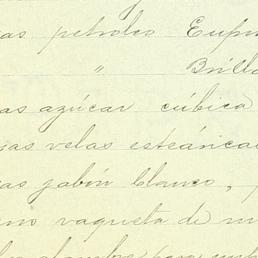 as petroleo Eup
" Brill
as azúcar cúbica
as velas esteáricas
as jabón blanco,
vaqueta de
alambre para